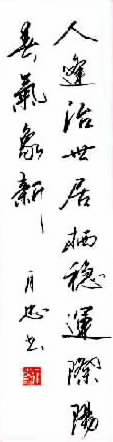 人逢治世居栖穏運際陽
春氣象新
月忠书